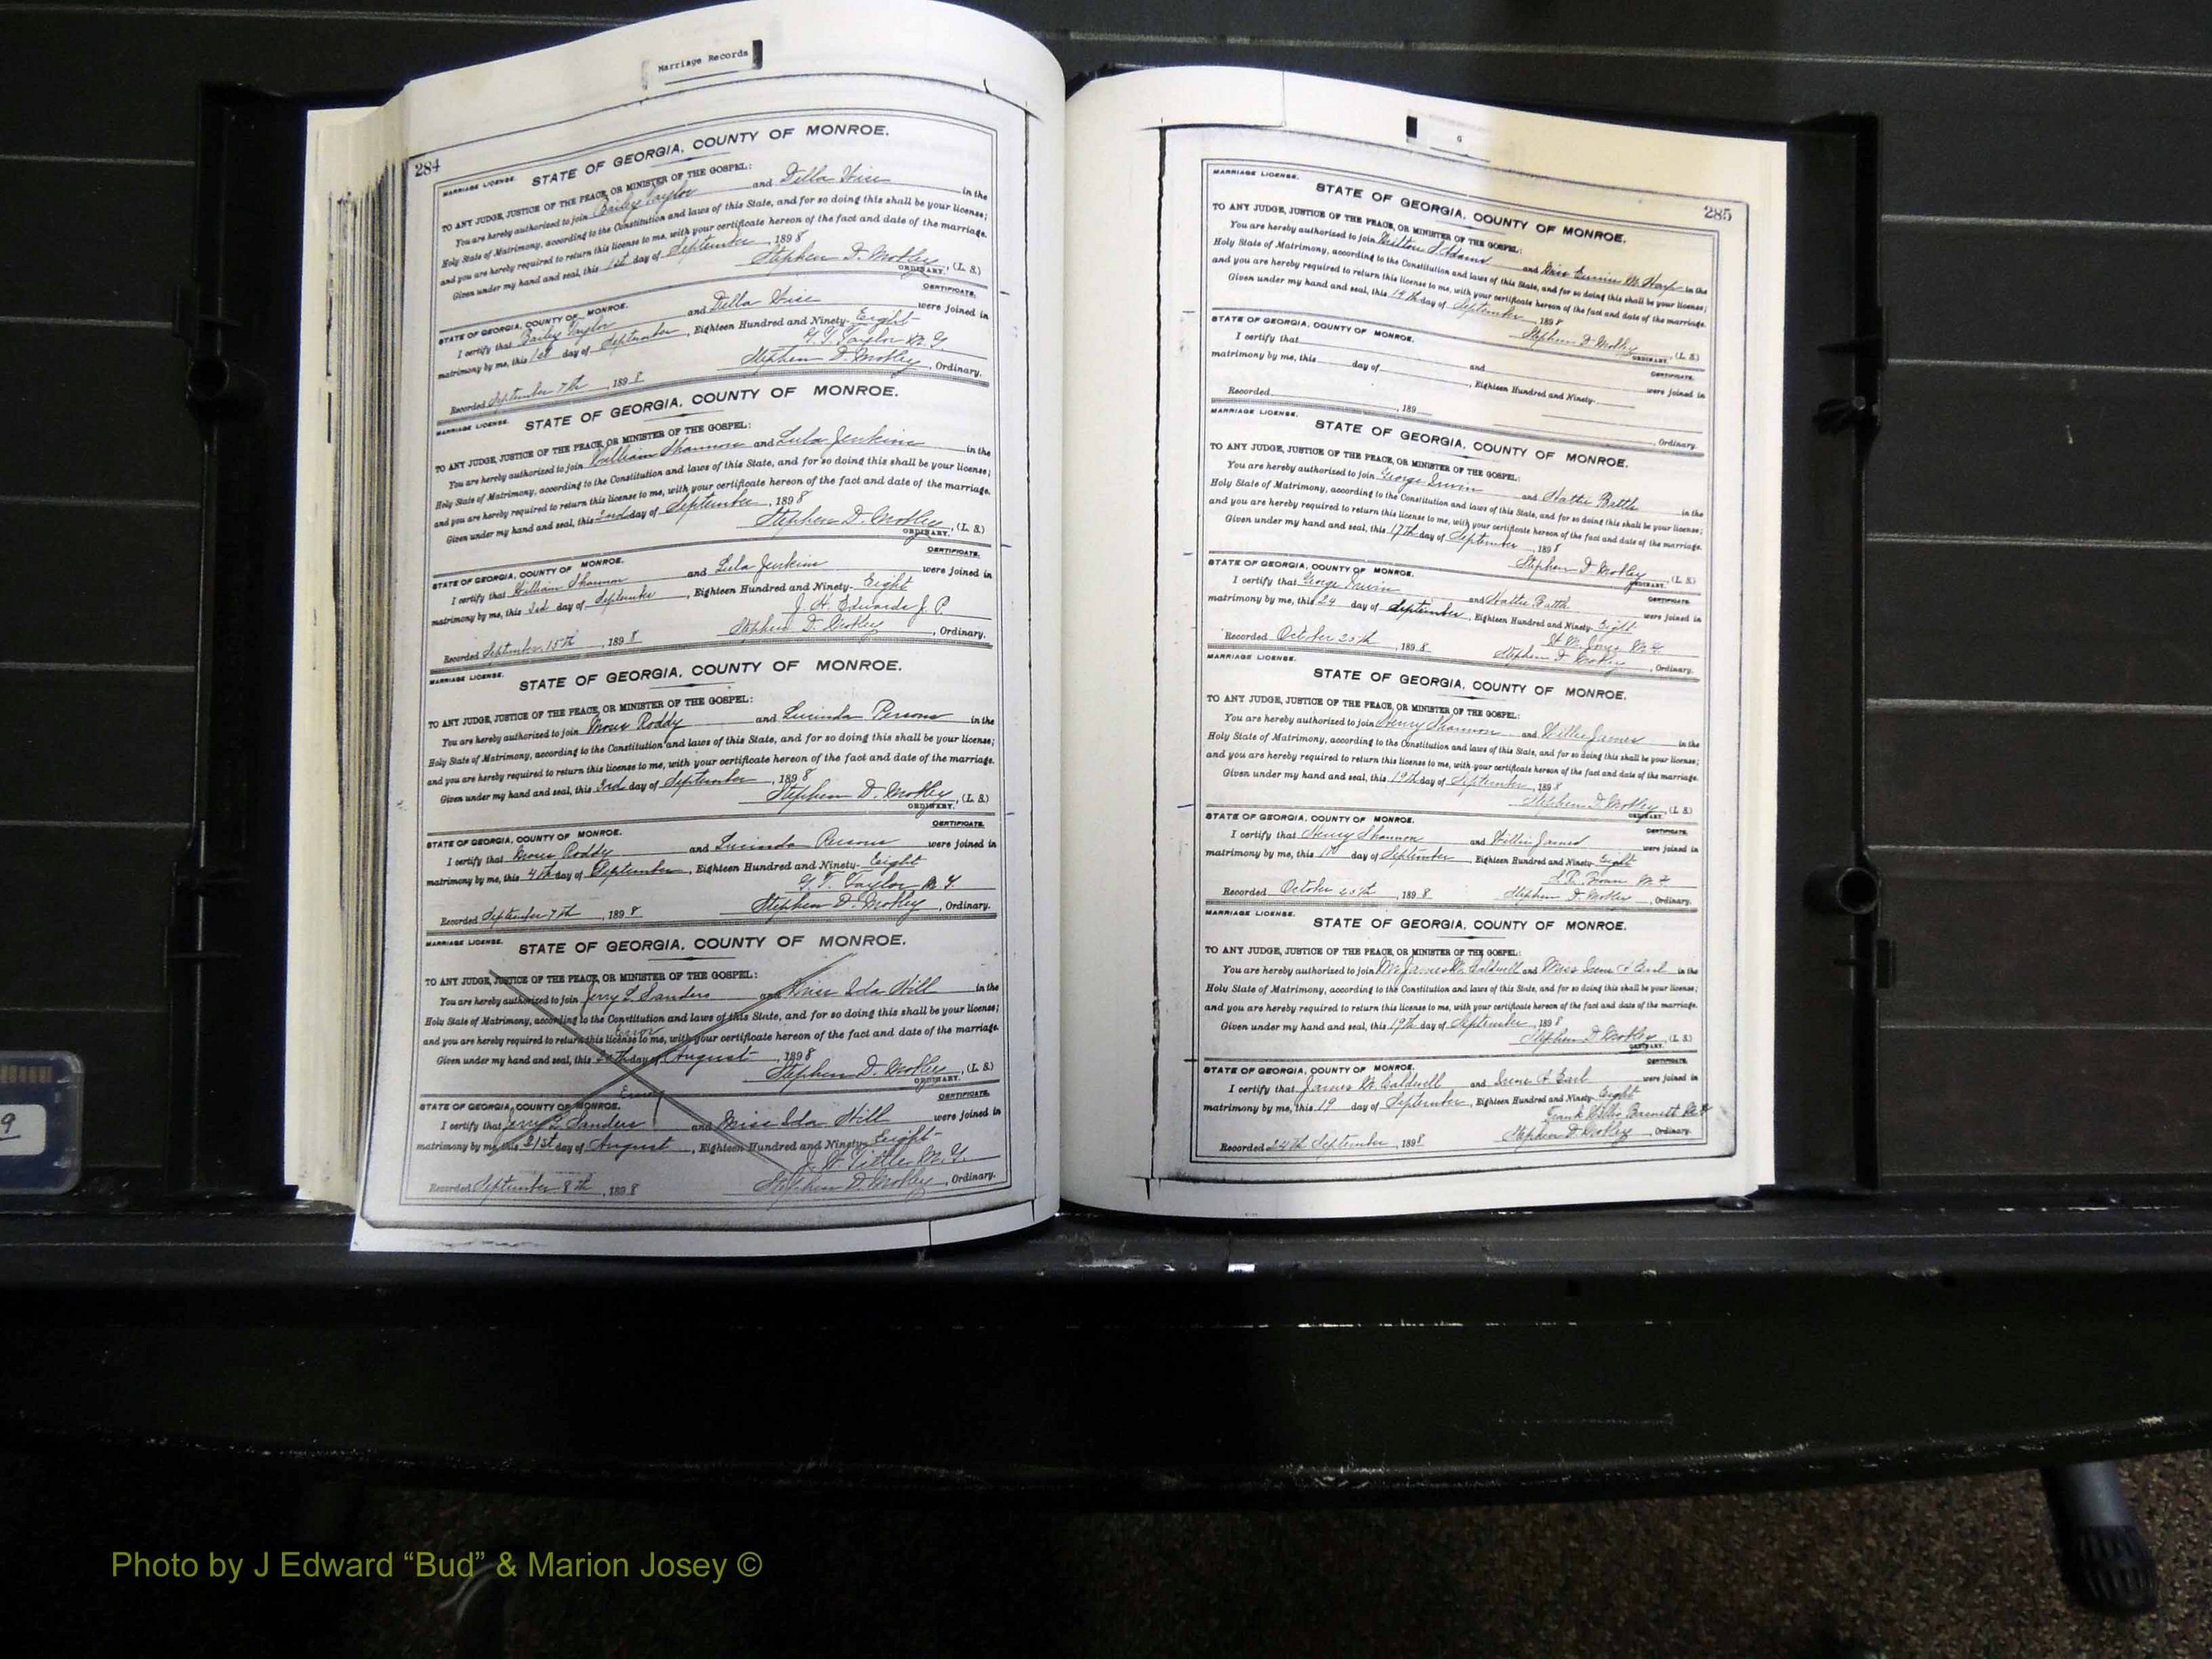 Marriage Records
284
MARRIAGE LICENSE. STATE OF GEORGIA, COUNTY OF MONROE.
TO ANY JUDGE, JUSTICE OF THE PEACE, OR MINISTER OF THE GOSPEL:
You are hereby authorized to join Bailey Taylor and Della Wise in the
Holy State of Matrimony, according to the Constitution and laws of this State, and for so doing this shall be your license;
and you are hereby required to return this license to me, with your certificate hereon of the fact and date of the marriage.
Given under my hand and seal, this 1st day of September, 1898
Stephen D. Mobley, (L. S.)
ORDINARY.
CERTIFICATE.
STATE OF GEORGIA, COUNTY OF MONROE.
I certify that Bailey Taylor and Della Wise were joined in
matrimony by me, this 1st day of September, Eighteen Hundred and Ninety- Eight
G. T. Taylor M. G
Recorded September 7th, 1898 Stephen D. Mobley, Ordinary.
MARRIAGE LICENSE. STATE OF GEORGIA, COUNTY OF MONROE.
TO ANY JUDGE, JUSTICE OF THE PEACE, OR MINISTER OF THE GOSPEL:
You are hereby authorized to join William Shannon and Lula Jenkins in the
Holy State of Matrimony, according to the Constitution and laws of this State, and for so doing this shall be your license;
and you are hereby required to return this license to me, with your certificate hereon of the fact and date of the marriage.
Given under my hand and seal, this 2nd day of September, 1898
Stephen D. Mobley, (L. S.)
ORDINARY.
CERTIFICATE.
STATE OF GEORGIA, COUNTY OF MONROE.
I certify that William Shannon and Lula Jenkins were joined in
matrimony by me, this 3rd day of September, Eighteen Hundred and Ninety- Eight
J. H. Edwards J. P.
Recorded September 15th, 1898 Stephen D. Mobley, Ordinary.
MARRIAGE LICENSE. STATE OF GEORGIA, COUNTY OF MONROE.
TO ANY JUDGE, JUSTICE OF THE PEACE, OR MINISTER OF THE GOSPEL:
You are hereby authorized to join Roddy and Lucinda Persons in the
Holy State of Matrimony, according to the Constitution and laws of this State, and for so doing this shall be your license;
and you are hereby required to return this license to me, with your certificate hereon of the fact and date of the marriage.
Given under my hand and seal, this 3rd day of September, 1898
Stephen D. Mobley, (L. S.)
ORDINARY.
CERTIFICATE.
STATE OF GEORGIA, COUNTY OF MONROE.
I certify that Roddy and Lucinda Persons were joined in
matrimony by me, this 4th day of September, Eighteen Hundred and Ninety- Eight
G. T. Taylor M. G.
Recorded September 7th, 1898 Stephen D. Mobley, Ordinary.
MARRIAGE LICENSE. STATE OF GEORGIA, COUNTY OF MONROE.
TO ANY JUDGE, JUSTICE OF THE PEACE, OR MINISTER OF THE GOSPEL:
You are hereby authorized to join Jerry L. Sanders and Miss Ida Hill in the
Holy State of Matrimony, according to the Constitution and laws of this State, and for so doing this shall be your license;
Error
and you are hereby required to return this license to me, with your certificate hereon of the fact and date of the marriage.
Given under my hand and seal, this day of August, 1898
Stephen D. Mobley, (L. S.)
ORDINARY.
Error
CERTIFICATE.
STATE OF GEORGIA, COUNTY OF MONROE.
I certify that Jerry L. Sanders and Miss Ida Hill were joined in
matrimony by me, this 21st day of August, Eighteen Hundred and Ninety- Eight
M. G.
Recorded September 8th, 1898 Stephen D. Mobley, Ordinary.
G
285
MARRIAGE LICENSE.
STATE OF GEORGIA, COUNTY OF MONROE.
TO ANY JUDGE, JUSTICE OF THE PEACE, OR MINISTER OF THE GOSPEL:
You are hereby authorized to join Milton Adams and Miss Eunice M. in the
Holy State of Matrimony, according to the Constitution and laws of this State, and for so doing this shall be your license;
and you are hereby required to return this license to me, with your certificate hereon of the fact and date of the marriage.
Given under my hand and seal, this 19th day of September, 1898
Stephen D. Mobley, (L. S.)
ORDINARY.
CERTIFICATE.
STATE OF GEORGIA, COUNTY OF MONROE.
I certify that and were joined in
matrimony by me, this day of, Eighteen Hundred and Ninety-
Recorded, 189
Ordinary.
MARRIAGE LICENSE.
STATE OF GEORGIA, COUNTY OF MONROE.
TO ANY JUDGE, JUSTICE OF THE PEACE, OR MINISTER OF THE GOSPEL:
You are hereby authorized to join George Irwin and Hattie Battle in the
Holy State of Matrimony, according to the Constitution and laws of this State, and for so doing this shall be your license;
and you are hereby required to return this license to me, with your certificate hereon of the fact and date of the marriage.
Given under my hand and seal, this 17th day of September, 1898
Stephen D. Mobley, (L. S.)
ORDINARY.
CERTIFICATE.
STATE OF GEORGIA, COUNTY OF MONROE.
I certify that George Irwin and Hattie Battle were joined in
matrimony by me, this 24 day of September, Eighteen Hundred and Ninety- Eight
Jones M. G.
Recorded October 25th, 1898 Stephen D. Mobley, Ordinary.
MARRIAGE LICENSE.
STATE OF GEORGIA, COUNTY OF MONROE.
TO ANY JUDGE, JUSTICE OF THE PEACE, OR MINISTER OF THE GOSPEL:
You are hereby authorized to join Henry Shannon and Willie James in the
Holy State of Matrimony, according to the Constitution and laws of this State, and for so doing this shall be your license;
and you are hereby required to return this license to me, with your certificate hereon of the fact and date of the marriage.
Given under my hand and seal, this 19th day of September, 1898
Stephen D. Mobley, (L. S.)
ORDINARY.
CERTIFICATE.
STATE OF GEORGIA, COUNTY OF MONROE.
I certify that Henry Shannon and Willie James were joined in
matrimony by me, this day of September, Eighteen Hundred and Ninety- Eight
M. G.
Recorded October 25th, 1898 Stephen D. Mobley, Ordinary.
MARRIAGE LICENSE.
STATE OF GEORGIA, COUNTY OF MONROE.
TO ANY JUDGE, JUSTICE OF THE PEACE, OR MINISTER OF THE GOSPEL:
You are hereby authorized to join Mr James W. Caldwell and Miss Irene in the
Holy State of Matrimony, according to the Constitution and laws of this State, and for so doing this shall be your license;
and you are hereby required to return this license to me, with your certificate hereon of the fact and date of the marriage.
Given under my hand and seal, this 19th day of September, 1898
Stephen D Mobley, (L. S.)
ORDINARY.
CERTIFICATE.
STATE OF GEORGIA, COUNTY OF MONROE.
I certify that James W. Caldwell and Irene were joined in
matrimony by me, this 19 day of September, Eighteen Hundred and Ninety- Eight
Frank Willis Barnett M. G
Recorded 24th September, 1898 Stephen D. Mobley, Ordinary.
9
Photo by J Edward “Bud” & Marion Josey ©